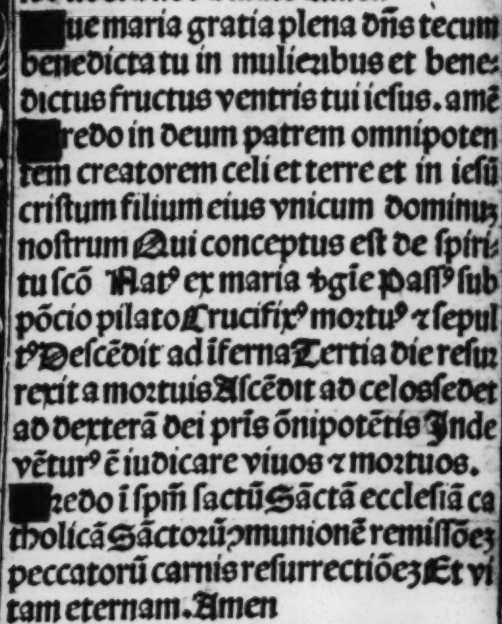 ue maria gratia plena dn̄s tecum
benedicta tu in mulieribus et bene-
dictus fructus ventris tui iesus. amē
redo in deum patrem omnipoten
tem creatorem celi et terre et in iesū
cristum filium eius vnicum dominuꝫ
nostrum Qui conceptus est de spiri-
tu scō Natꝰ ex maria v̄gīe Passꝰ sub
pōcio pilato Crucifixꝰ mortuꝰ ⁊ sepul
tꝰ Descēdit ad īferna Tertia die resur
rexit a mortuis Ascēdit ad celos sedet
ad dexterā dei pr̄is ōnipotētis Inde
vēturꝰ ē iudicare viuos ⁊ mortuos.
redo ī sp̄m̄ sactū Sāctā ecclesiā ca
tholicā Sāctorū ꝯmunionē remissōeꝫ
peccatorū carnis resurrectiōeꝫ Et vi
tam eternam. Amen